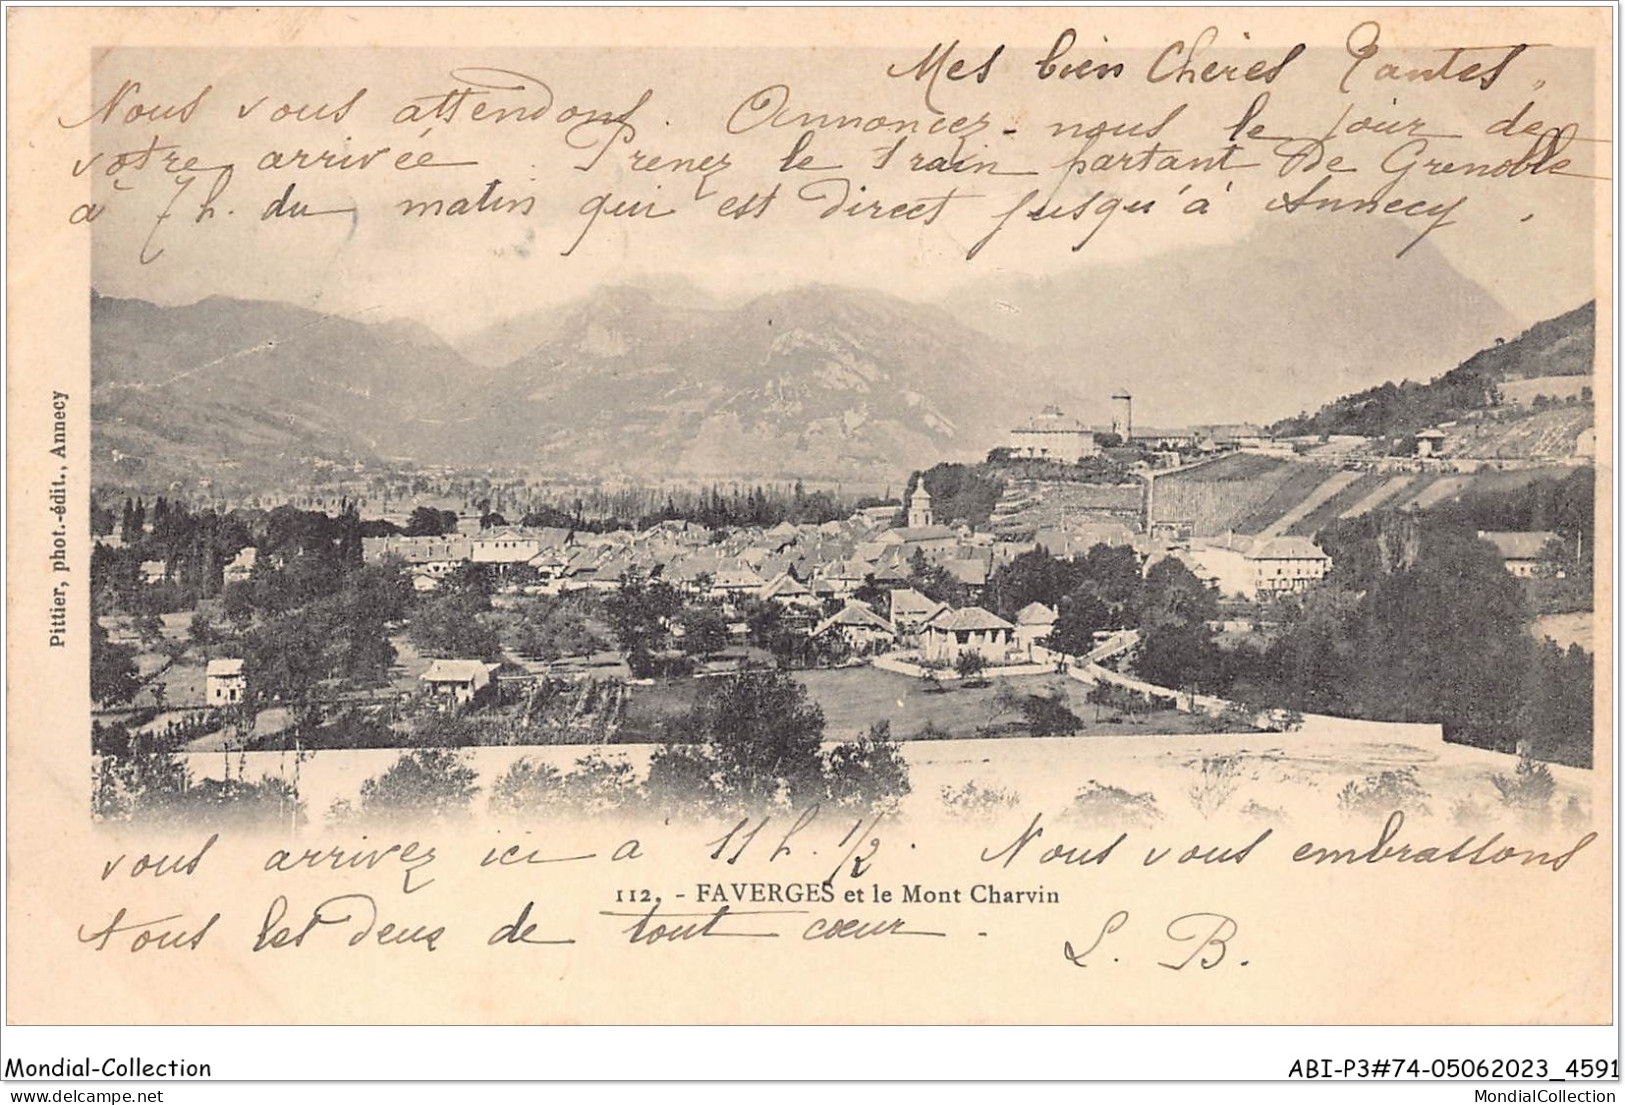 Mes bien Chères Tantes,
Nous vous attendons. Annoncez-nous le jour de
votre arrivée. Prenez le train partant de Grenoble
à 7 h. du matin qui est direct jusqu'à Annecy.
Pittier, phot.-édit., Annecy
vous arrivez ici à 11 h. 1/2. Nous vous embrassons
112. - FAVERGES et le Mont Charvin
tous les deux de tout cœur.
L. B.
Mondial-Collection
ABI-P3#74-05062023_4591
delcampe.net
MondialCollection